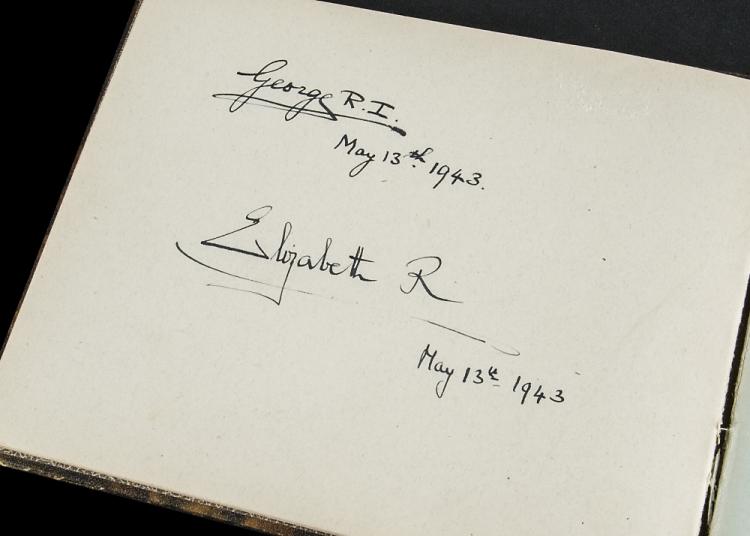 George R.I.
May 13th 1943.
Elizabeth R
May 13th 1943